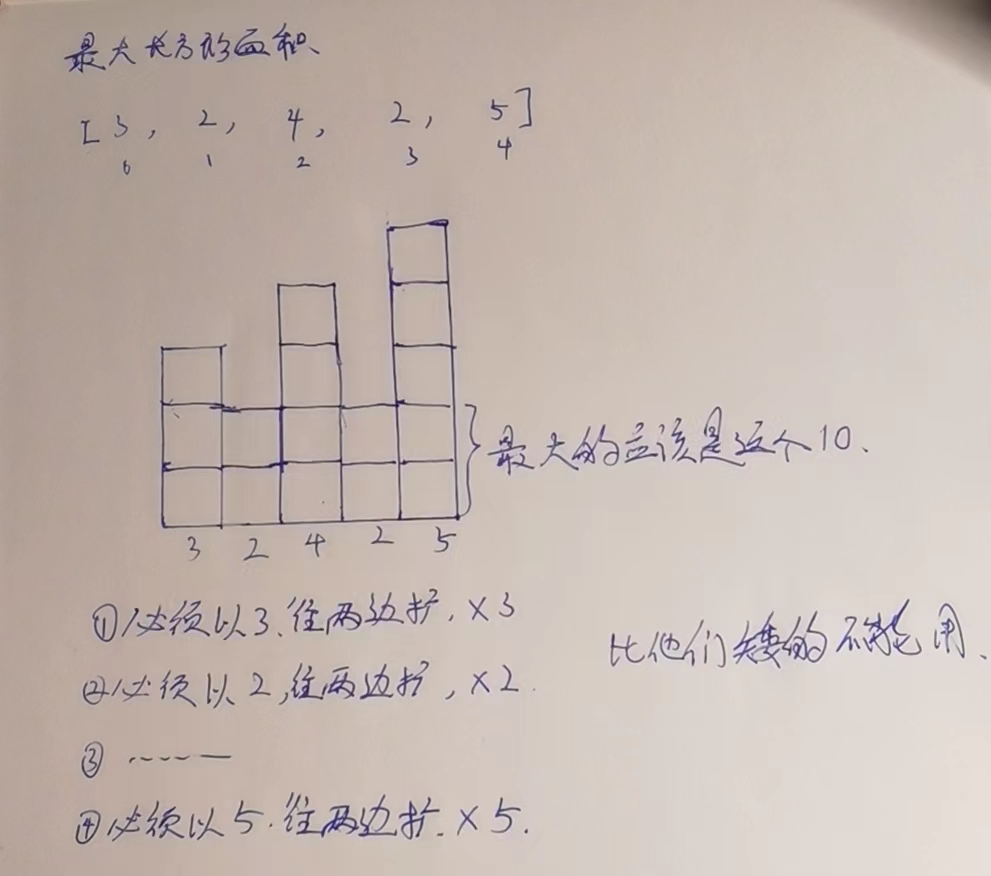 最大长方形面积、
[3, 2, 4, 2, 5]
0 1 2 3 4
最大的应该是这个10、
3 2 4 2 5
①必须以3、往两边扩、×3
比他们矮的不能用、
②必须以2,往两边扩,×2.
③ ······—
④必须以5.往两边扩.×5.